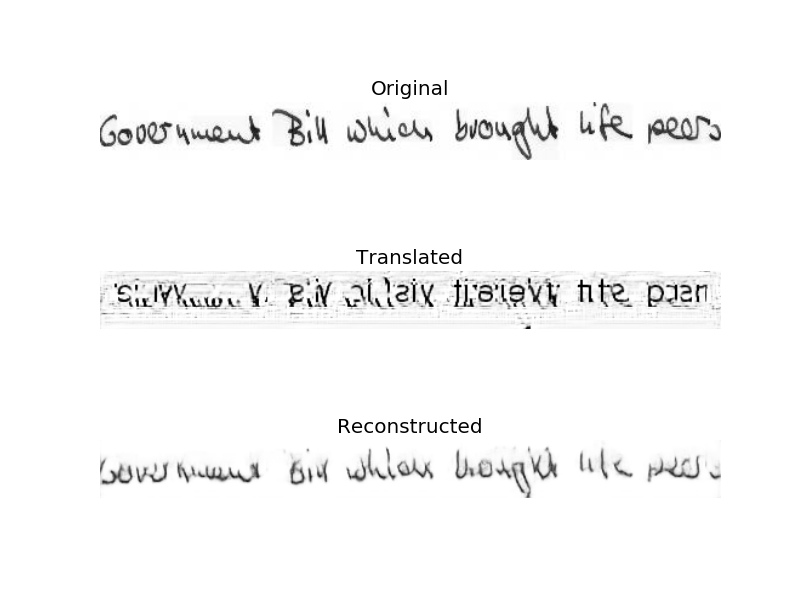 Original
Government Bill which brought life peers
Translated
Reconstructed
Government Bill which brought life peers